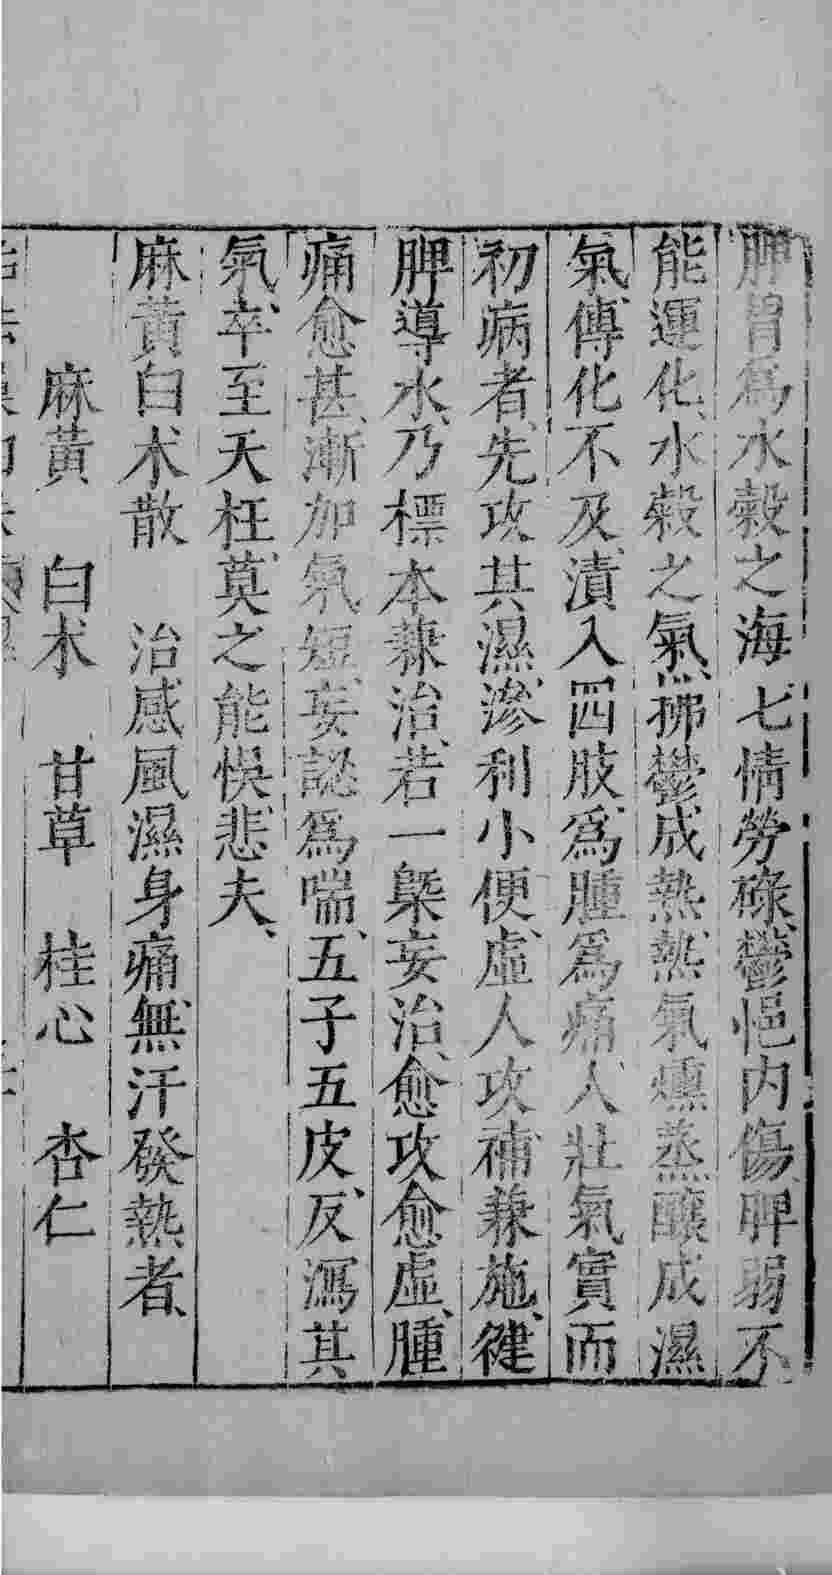 脾胃爲水穀之海、七情勞碌、鬱悒内傷、脾弱不
能運化、水穀之氣、怫鬱成熱、熱氣燻蒸、釀成濕
氣、傳化不及、漬入四肢、爲腫爲痛、人壯氣實而
初病者、先攻其濕、滲利小便、虛人攻補兼施、健
脾導水、乃標本兼治、若一槩妄治、愈攻愈虛、腫
痛愈甚、漸加氣短、妄認爲喘、五子五皮、反瀉其
氣、卒至夭枉、莫之能悞、悲夫、
麻黃白朮散　治感風濕身痛、無汗發熱者、
麻黃　白朮　甘草　桂心　杏仁